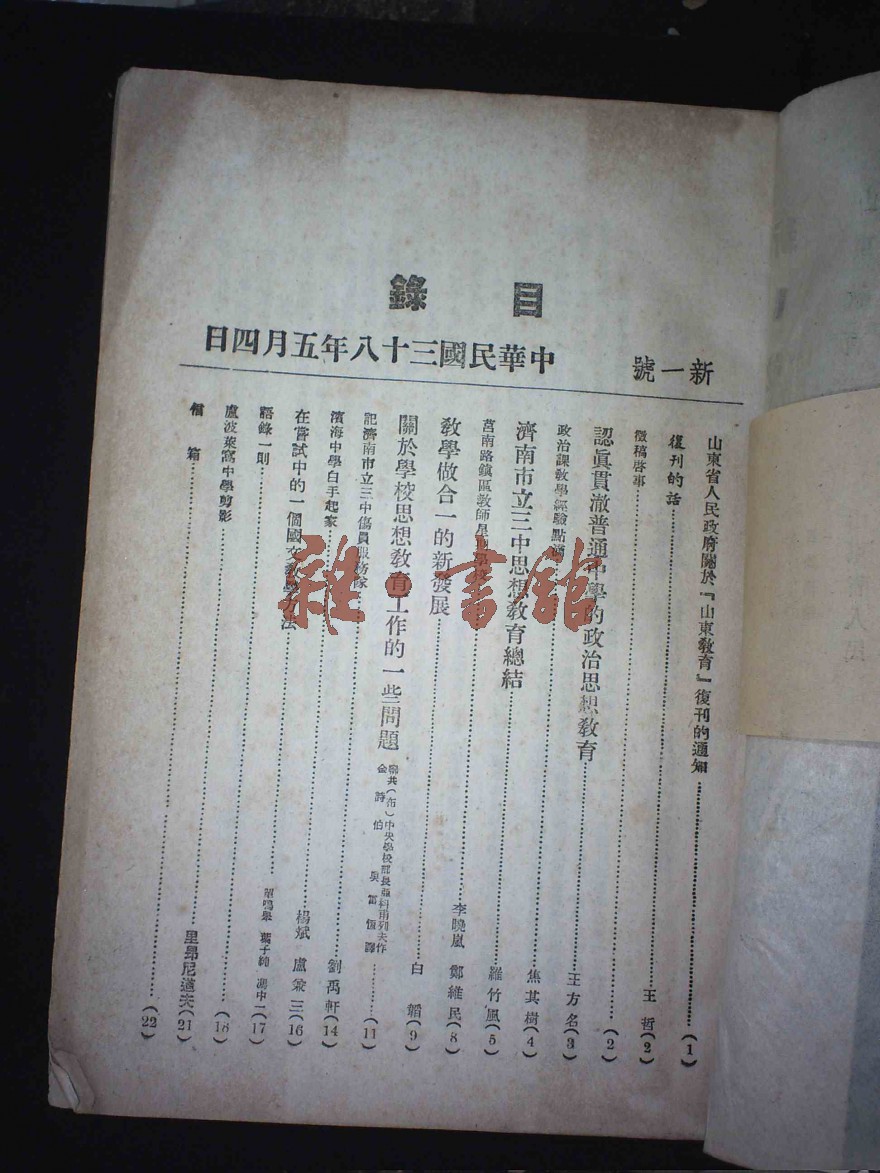 目 錄
新一號 中華民國三十八年五月四日
山東省人民政府關於『山東敎育』復刊的通知 (1)
復刊的話 王 哲 (2)
徵稿啓事 (2)
認眞貫澈普通中學的政治思想敎育 王方名 (3)
政治課敎學經驗點滴 焦其樹 (4)
濟南市立三中思想敎育總結 羅竹風 (5)
莒南路鎭區敎師星期學校 李曉嵐 鄭維民 (8)
敎學做合一的新發展 白 韜 (9)
關於學校思想敎育工作的一些問題 聯共(布)中央學校部長亞科甫列夫作 金詩伯 吳雷恆譯 (11)
記濟南市立三中傷員服務隊 劉禹軒 (14)
濱海中學白手起家 楊斌 盧兼三 (16)
在嘗試中的一個國文敎學方法 (17)
語錄一則 (18)
盧波萊窩中學剪影 里昂尼道夫 (21)
信 箱 (22)
雜·書館